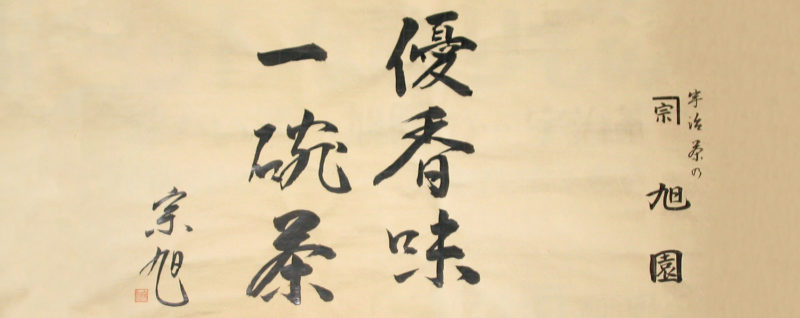 宇治茶の
宗旭園
優香味
一碗茶
宗旭